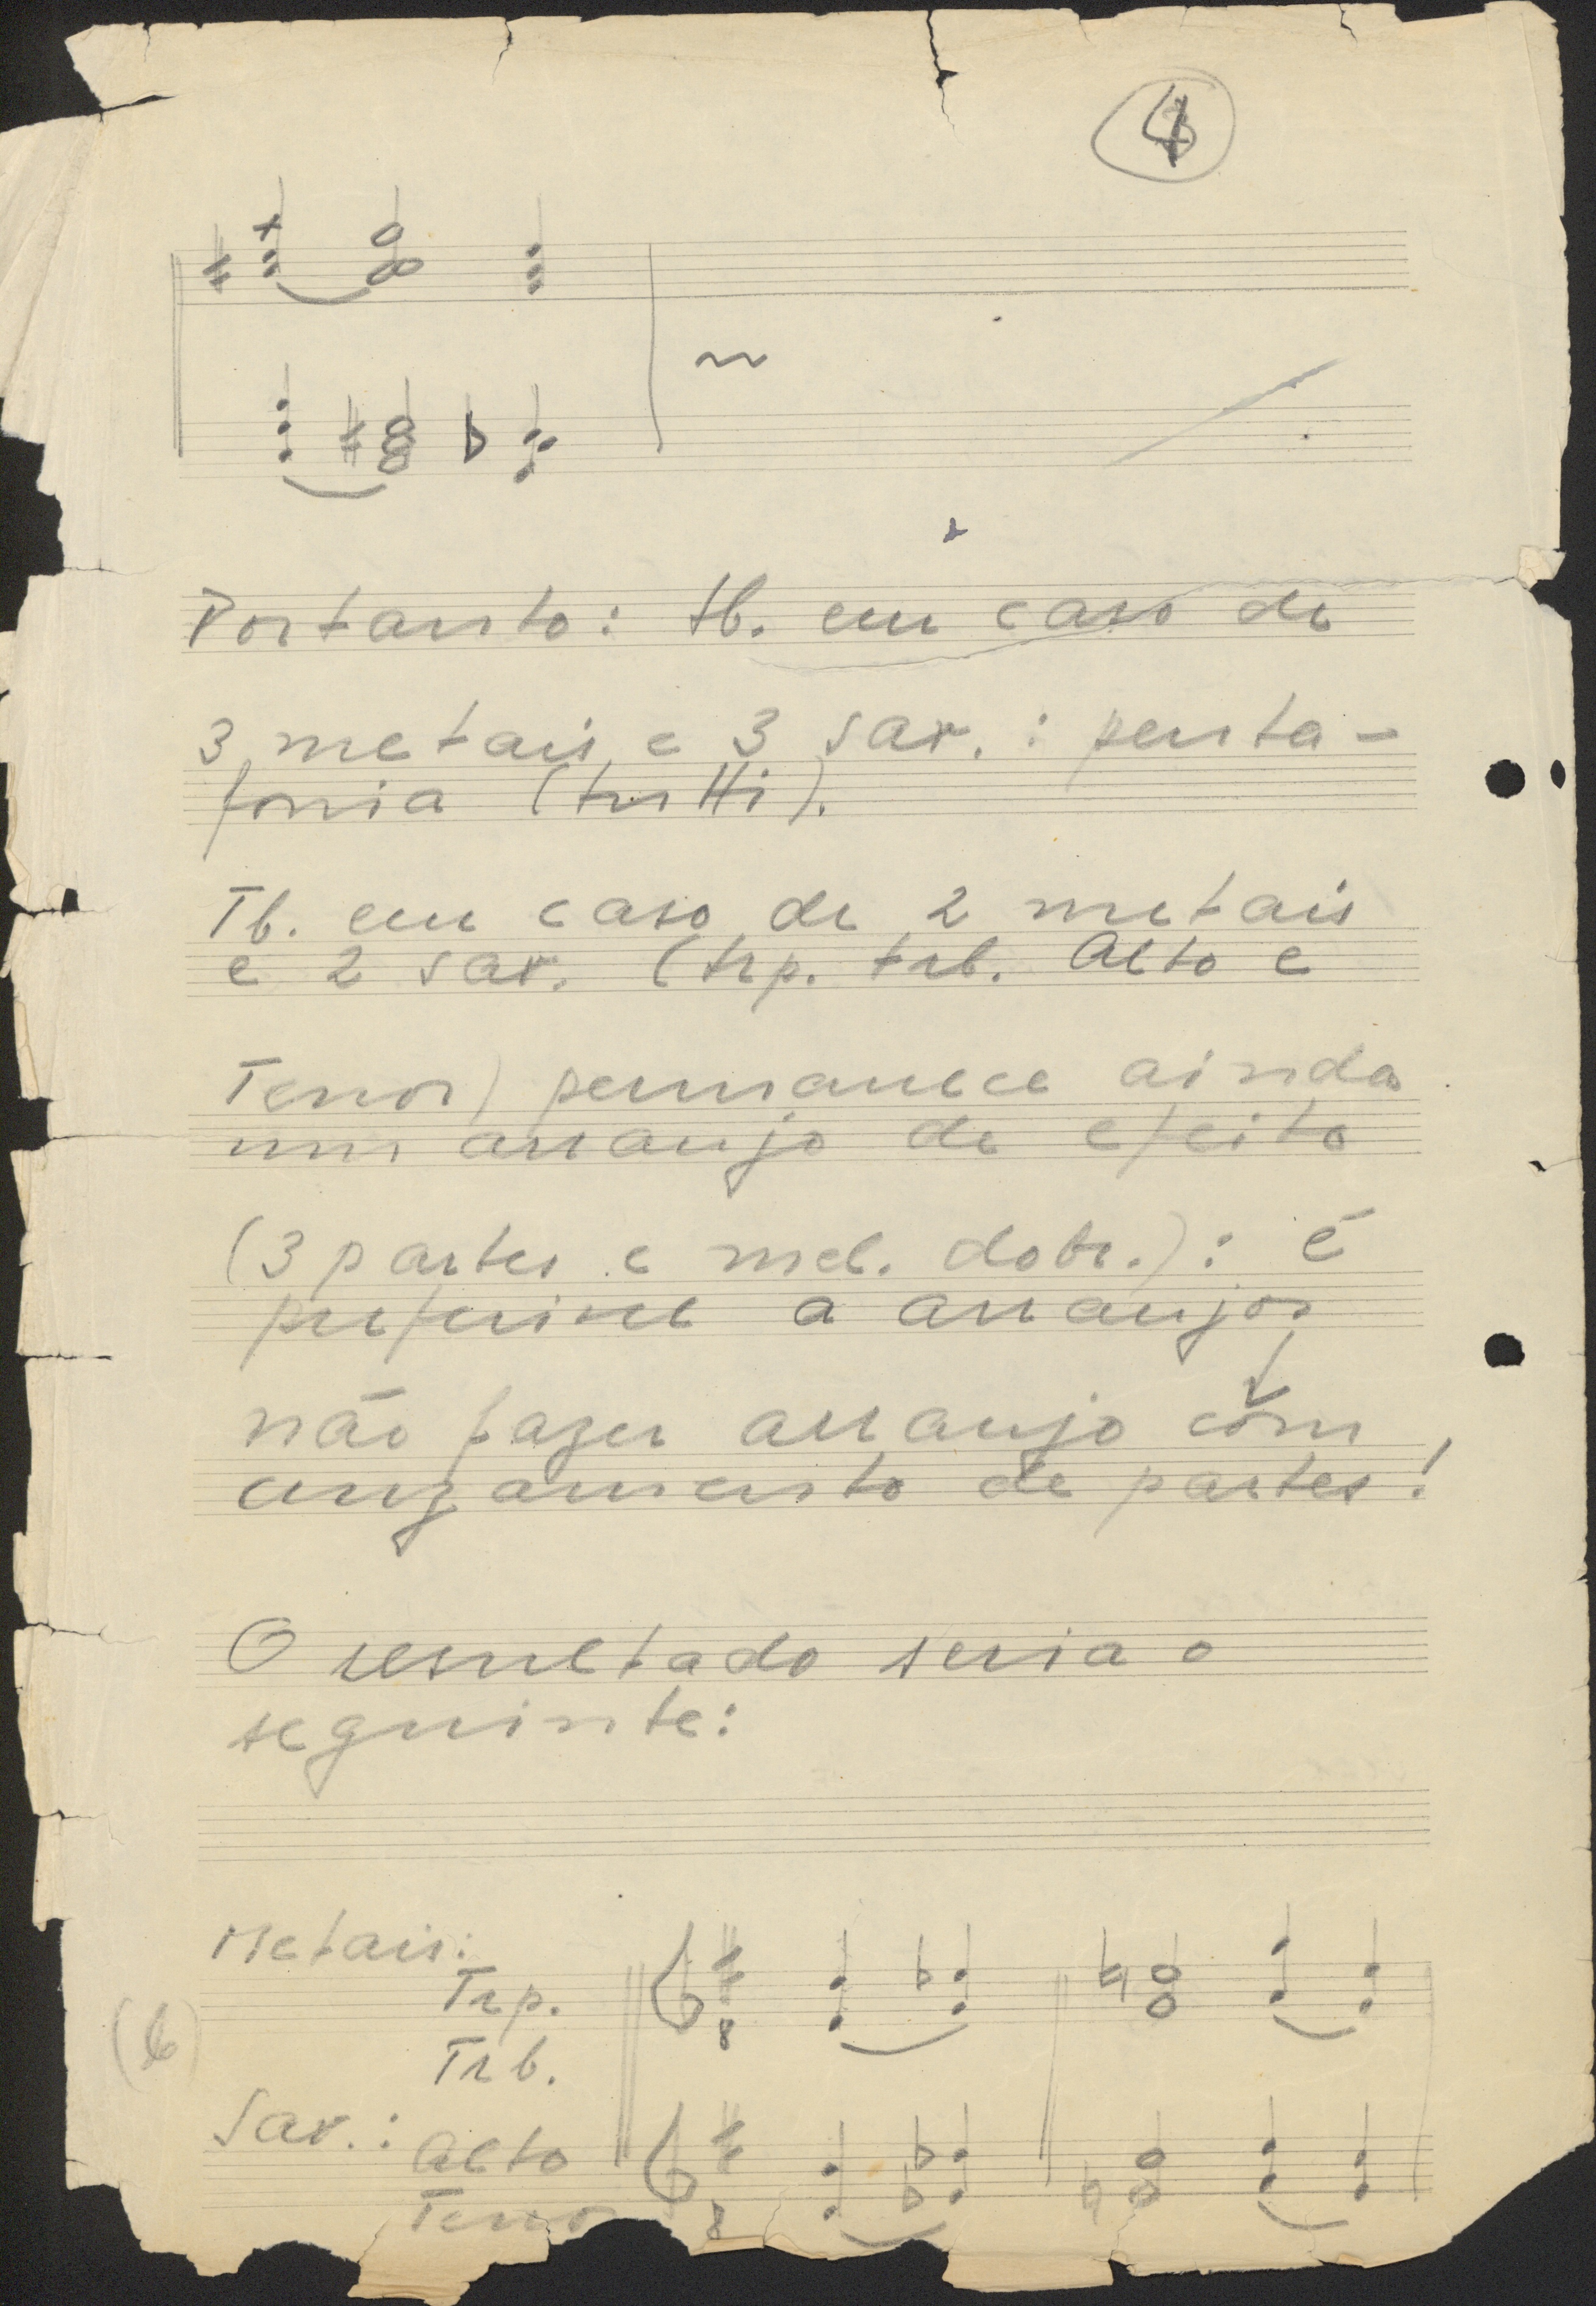 4
Portanto: tb. em caso de
3 metais e 3 sax. : penta-
fonia (tutti).
Tb. em caso de 2 metais
e 2 sax. (trp. trb. Alto e
Tenor) permanece ainda
um arranjo de efeito
(3 partes e mel. dobr.): é
preferivel a arranjos
não fazer arranjo com
cruzamento de partes!
O resultado seria o
seguinte:
Metais:
Trp.
Trb.
8
Sax.: Alto
Tenor
8